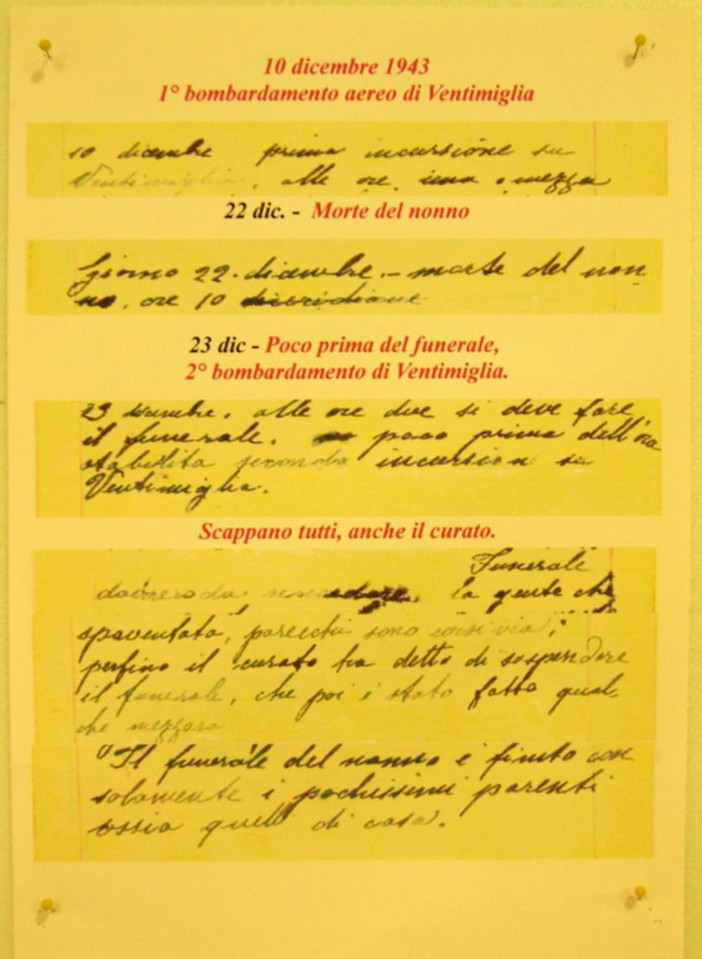 10 dicembre 1943
1° bombardamento aereo di Ventimiglia
10 dicembre prima incursione su
Ventimiglia, alle ore una e mezza
22 dic. - Morte del nonno
Giorno 22. dicembre. - morte del non
no. ore 10
23 dic - Poco prima del funerale,
2° bombardamento di Ventimiglia.
23 dicembre. alle ore due si deve fare
il funerale. poco prima dell'ora
stabilita seconda incursion su
Ventimiglia.
Scappano tutti, anche il curato.
Funerale
la gente che
spaventata, parecchi sono corsi via,
perfino il curato ha detto di sospendere
il funerale, che poi è stato fatto qual
che mezzora
"Il funerale del nonno è finito con
solamente i pochissimi parenti
ossia quelli di casa.